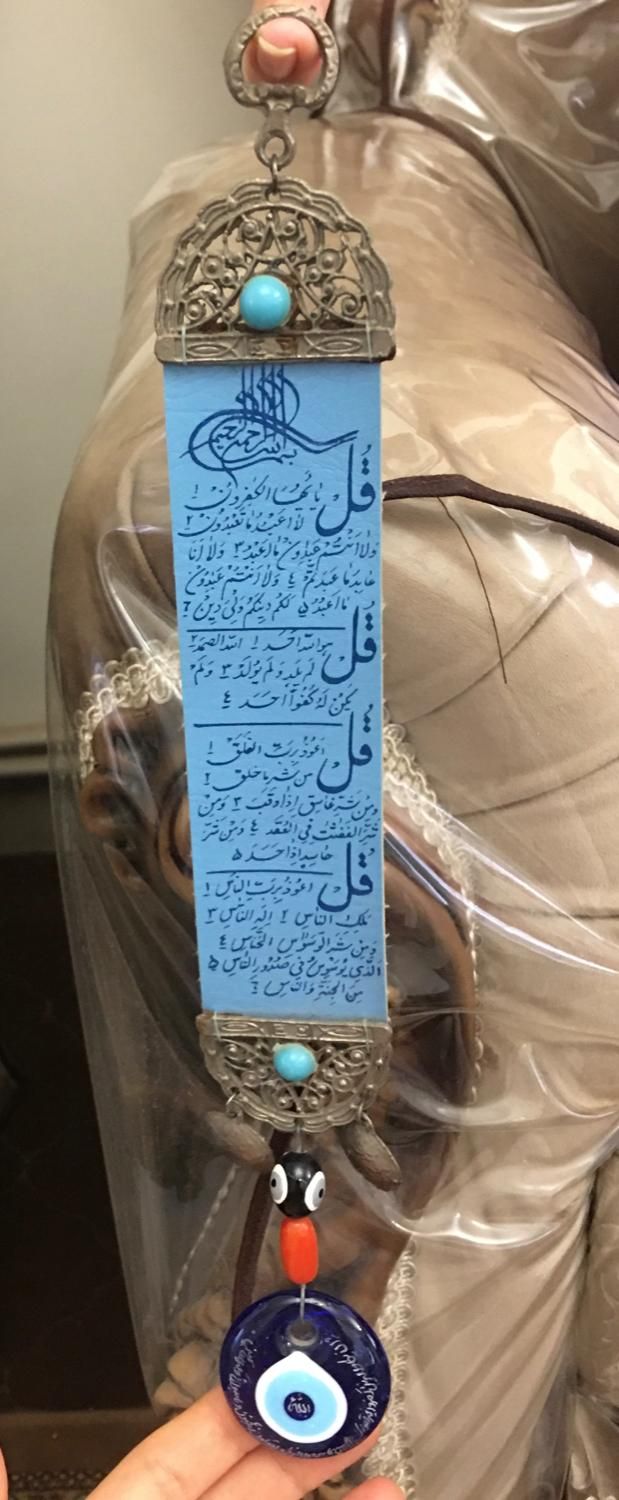 بسم الله الرحمن الرحيم
قل يا أيها الكفرون ١
لا أعبد ما تعبدون ٢
ولا أنتم عبدون ما أعبد ٣ ولا أنا
عابد ما عبدتم ٤ ولا أنتم عبدون
ما أعبد ٥ لكم دينكم ولي دين ٦
قل هو الله أحد ١ الله الصمد ٢
لم يلد ولم يولد ٣ ولم
يكن له كفوا أحد ٤
قل أعوذ برب الفلق ١
من شر ما خلق ٢
ومن شر غاسق إذا وقب ٣ ومن
شر النفثت في العقد ٤ ومن شر
حاسد إذا حسد ٥
قل أعوذ برب الناس ١
ملك الناس ٢ إله الناس ٣
من شر الوسواس الخناس ٤
الذي يوسوس في صدور الناس ٥
من الجنة والناس ٦
الله